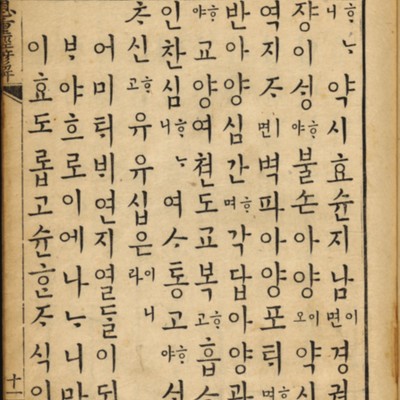 ᄒᆞ니ᄂᆞ약시효슌지남이면경권
쟝이셩ᄒᆞ야불손아양이오약시
역지ᄌᆞㅣ면벽파아양포ᄐᆡᄒᆞ며
반아양심간ᄒᆞ며각답아양과
ᄒᆞ야교양여쳔도교복ᄒᆞ고흡
인찬심ᄒᆞ니ᄂᆞ여ᄉᆞ통고ᄒᆞ야
초신ᄒᆞ고유유십은이라니
어미ᄐᆡᄇᆡ연지열ᄃᆞᆯ이되
ᄇᆞ야흐로이에나ᄂᆞ니만
이효도롭고슌ᄒᆞᆫᄌᆞ식이
十一